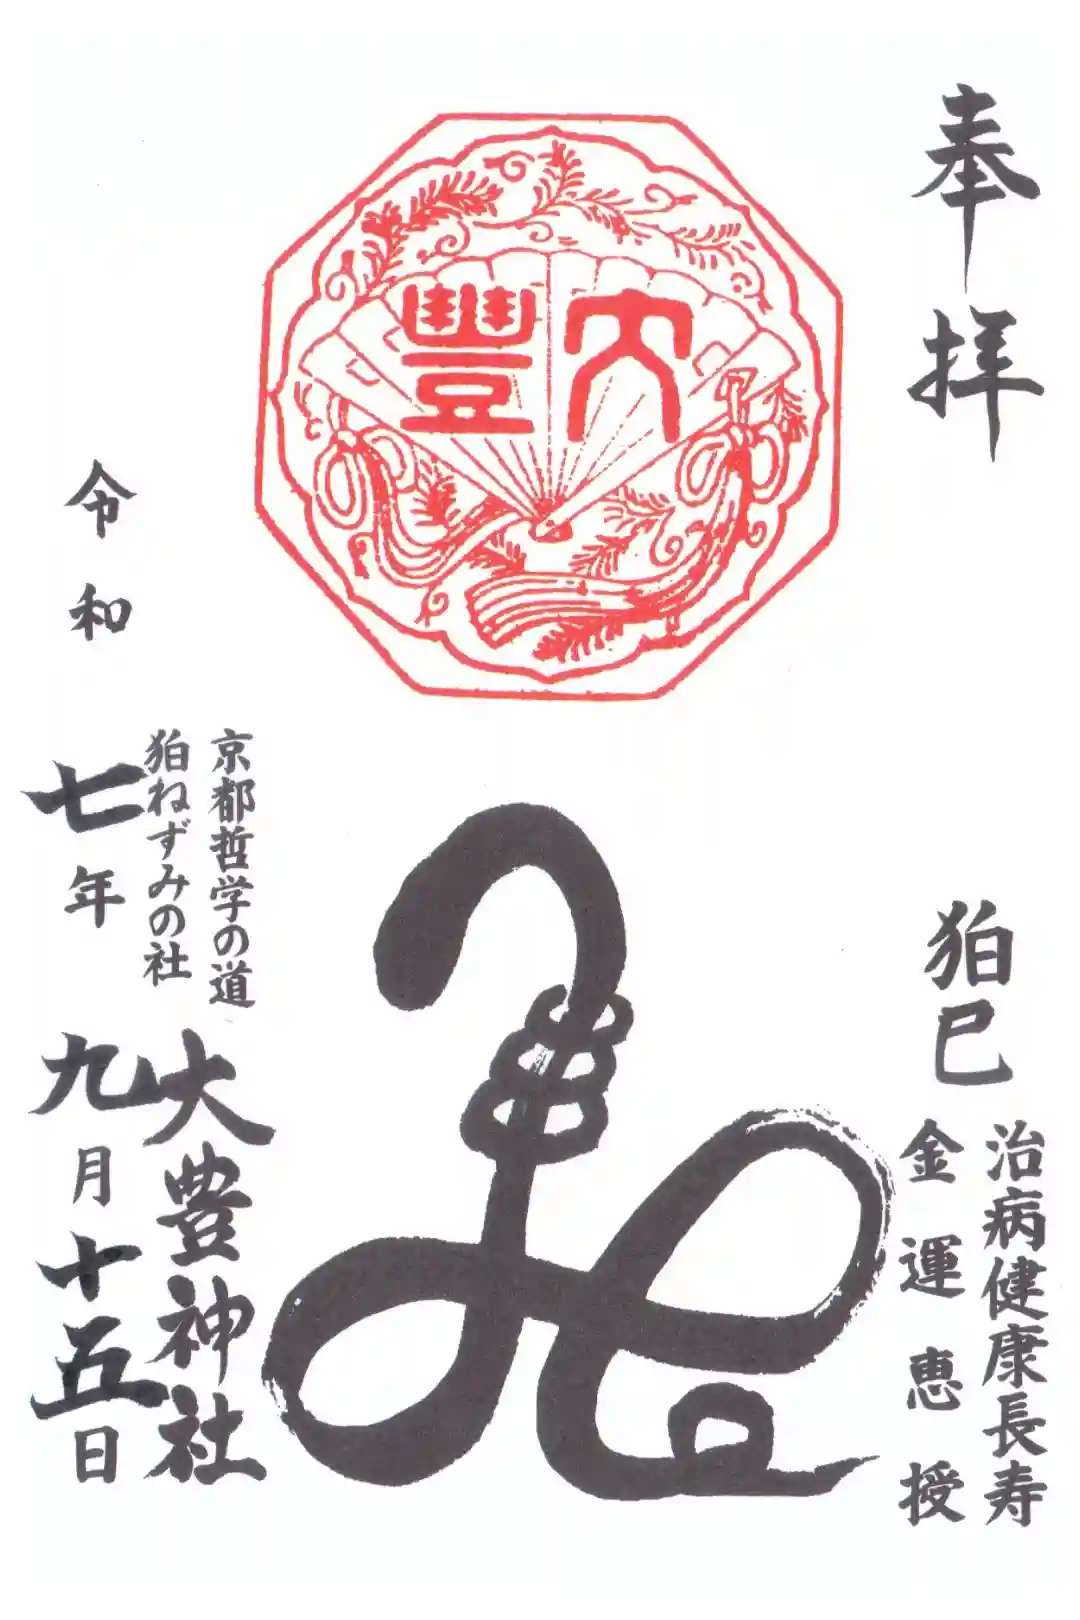 奉拝
大豊
狛巳
治病健康長寿
金運恵授
京都哲学の道
狛ねずみの社
大豊神社
令和七年九月十五日